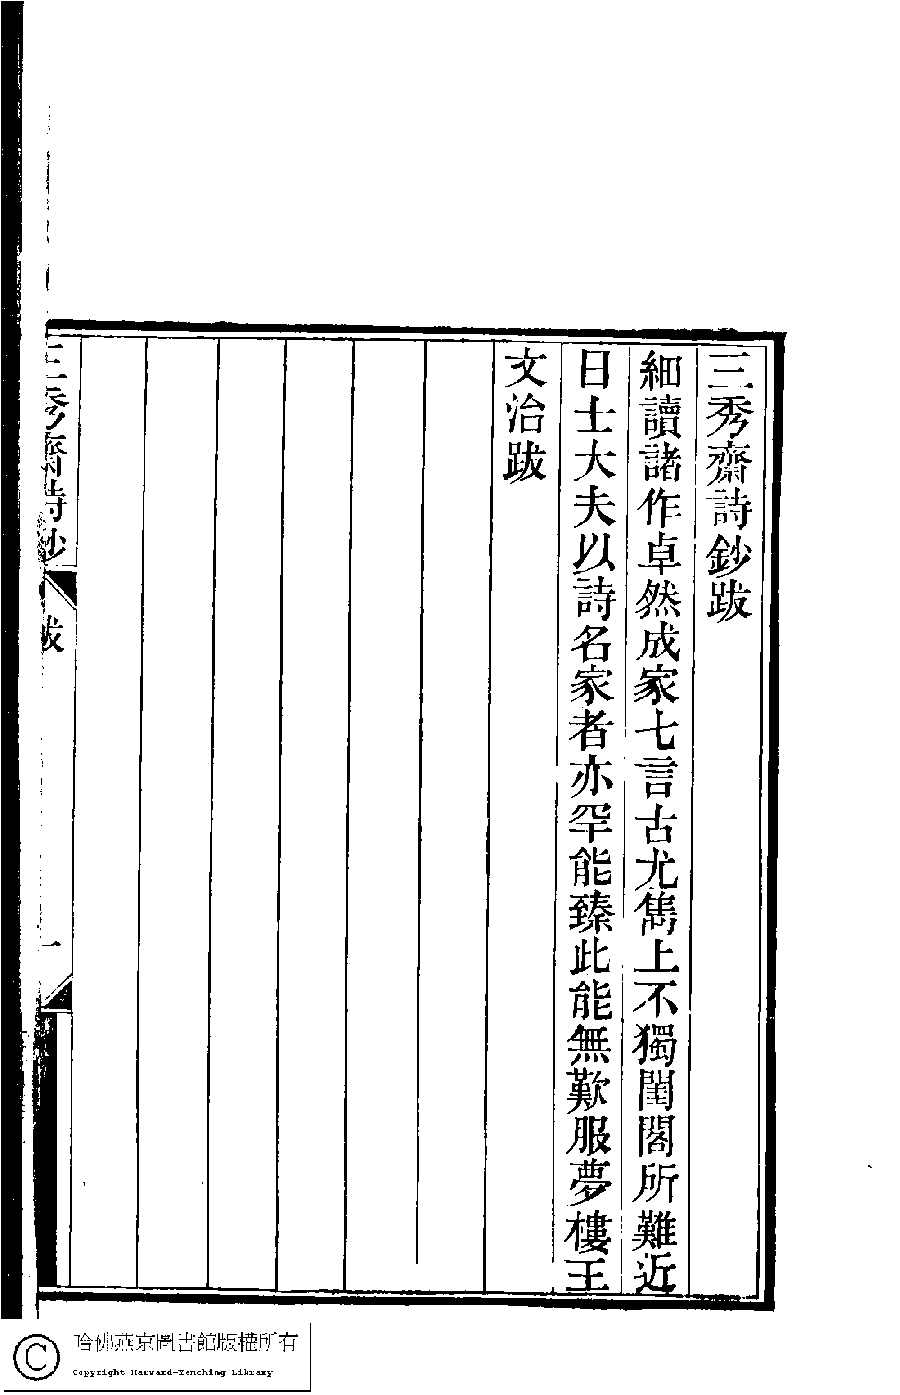 三秀齋詩鈔跋
細讀諸作卓然成家七言古尤雋上不獨閨閣所難近
日士大夫以詩名家者亦罕能臻此能無歎服夢樓王
文治跋
三秀齋詩鈔
跋
一
哈佛燕京圖書館版權所有
Copyright Harvard-Yenching Library